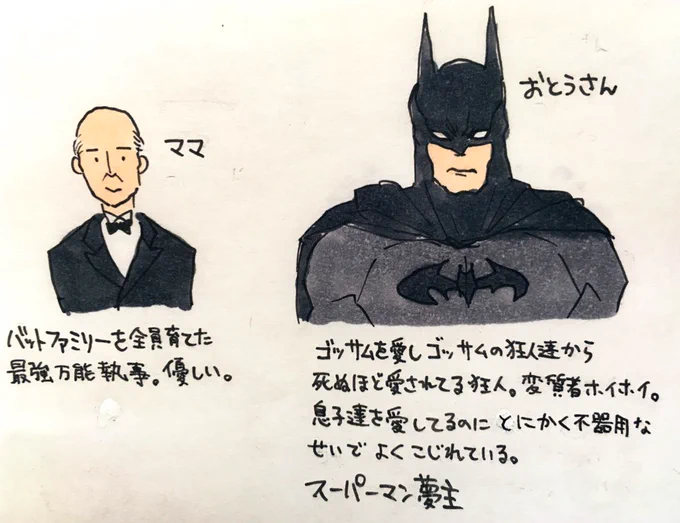 ママ
バットファミリーを全員育てた
最強万能執事。優しい。
おとうさん
ゴッサムを愛しゴッサムの狂人達から
死ぬほど愛されてる狂人。変質者ホイホイ。
息子達を愛してるのに とにかく不器用な
せいで よくこじれている。
スーパーマン夢主